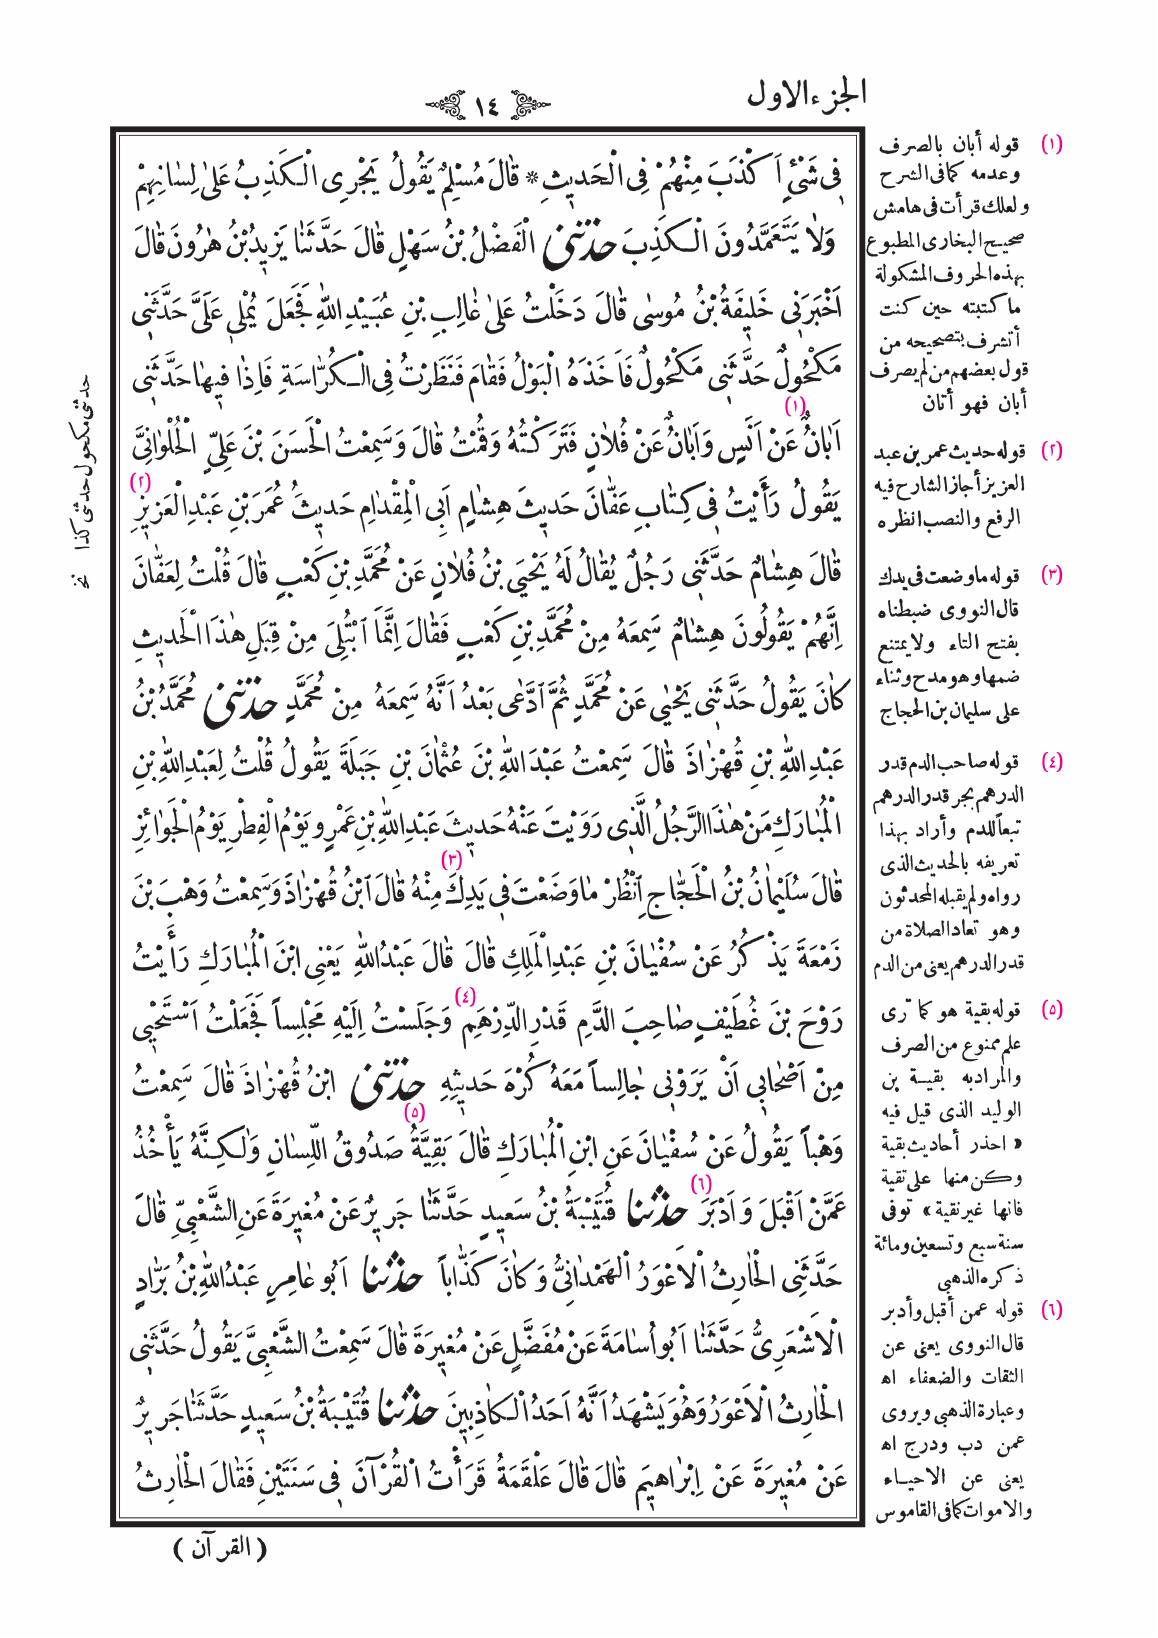 الجزء الاول
١٤
فِى شَىْءٍ اَكْذَبَ مِنْهُمْ فِى الْحَديثِ * قَالَ مُسْلِمٌ يَقُولُ يَجْرِى الْكَذِبُ عَلىٰ لِسَانِهِمْ
وَلَا يَتَعَمَّدُونَ الْكَذِبَ حَدَّثَنِى الْفَضْلُ بْنُ سَهْلٍ قَالَ حَدَّثَنَا يَزيدُ بْنُ هٰرُونَ قَالَ
اَخْبَرَنِى خَليفَةُ بْنُ مُوسٰى قَالَ دَخَلْتُ عَلىٰ غَالِبِ بْنِ عُبَيْدِ اللهِ فَجَعَلَ يُمْلِى عَلَىَّ حَدَّثَنِى
مَكْحُولٌ حَدَّثَنِى مَكْحُولٌ فَاَخَذَهُ الْبَوْلُ فَقَامَ فَنَظَرْتُ فِى الْكُرَّاسَةِ فَاِذَا فِيهَا حَدَّثَنِى
اَبَانٌ (١) عَنْ اَنَسٍ وَاَبَانٌ عَنْ فُلَانٍ فَتَرَكْتُهُ وَقُمْتُ قَالَ وَسَمِعْتُ الْحَسَنَ بْنَ عَلِىٍّ الْحُلْوَانِىَّ
يَقُولُ رَأَيْتُ فِى كِتَابِ عَفَّانَ حَديثَ هِشَامٍ اَبِى الْمِقْدَامِ حَديثَ عُمَرَ بْنِ عَبْدِ الْعَزيزِ (٢)
قَالَ هِشَامٌ حَدَّثَنِى رَجُلٌ يُقَالُ لَهُ يَحْيَى بْنُ فُلَانٍ عَنْ مُحَمَّدِ بْنِ كَعْبٍ قَالَ قُلْتُ لِعَفَّانَ
اِنَّهُمْ يَقُولُونَ هِشَامٌ سَمِعَهُ مِنْ مُحَمَّدِ بْنِ كَعْبٍ فَقَالَ اِنَّمَا ابْتُلِىَ مِنْ قِبَلِ هٰذَا الْحَديثِ
كَانَ يَقُولُ حَدَّثَنِى يَحْيٰى عَنْ مُحَمَّدٍ ثُمَّ ادَّعٰى بَعْدُ اَنَّهُ سَمِعَهُ مِنْ مُحَمَّدٍ حَدَّثَنِى مُحَمَّدُ بْنُ
عَبْدِ اللهِ بْنِ قُهْزَاذَ قَالَ سَمِعْتُ عَبْدَ اللهِ بْنَ عُثْمَانَ بْنِ جَبَلَةَ يَقُولُ قُلْتُ لِعَبْدِ اللهِ بْنِ
الْمُبَارَكِ مَنْ هٰذَا الرَّجُلُ الَّذِى رَوَيْتَ عَنْهُ حَديثَ عَبْدِ اللهِ بْنِ عَمْرٍو يَوْمُ الْفِطْرِ يَوْمُ الْجَوَائِزِ
قَالَ سُلَيْمَانُ بْنُ الْحَجَّاجِ اُنْظُرْ مَا وَضَعْتَ فِى يَدِكَ (٣) مِنْهُ قَالَ ابْنُ قُهْزَاذَ وَسَمِعْتُ وَهْبَ بْنَ
زَمْعَةَ يَذْكُرُ عَنْ سُفْيَانَ بْنِ عَبْدِ الْمَلِكِ قَالَ قَالَ عَبْدُ اللهِ يَعْنِى ابْنَ الْمُبَارَكِ رَأَيْتُ
رَوْحَ بْنَ غُطَيْفٍ صَاحِبَ الدَّمِ قَدْرِ الدِّرْهَمِ (٤) وَجَلَسْتُ اِلَيْهِ مَجْلِساً فَجَعَلْتُ اَسْتَحْيِى
مِنْ اَصْحَابِى اَنْ يَرَوْنِى جَالِساً مَعَهُ كُرْهَ حَديثِهِ حَدَّثَنِى ابْنُ قُهْزَاذَ قَالَ سَمِعْتُ
وَهْباً يَقُولُ عَنْ سُفْيَانَ عَنِ ابْنِ الْمُبَارَكِ قَالَ بَقِيَّةُ (٥) صَدُوقُ اللِّسَانِ وَلٰكِنَّهُ يَأْخُذُ
عَمَّنْ اَقْبَلَ وَاَدْبَرَ (٦) حَدَّثَنَا قُتَيْبَةُ بْنُ سَعيدٍ حَدَّثَنَا جَريرٌ عَنْ مُغيرَةَ عَنِ الشَّعْبِىِّ قَالَ
حَدَّثَنِى الْحَارِثُ الْاَعْوَرُ الْهَمْدَانِىُّ وَكَانَ كَذَّاباً حَدَّثَنَا اَبُو عَامِرٍ عَبْدُ اللهِ بْنُ بَرَّادٍ
الْاَشْعَرِىُّ حَدَّثَنَا اَبُو اُسَامَةَ عَنْ مُفَضَّلٍ عَنْ مُغيرَةَ قَالَ سَمِعْتُ الشَّعْبِىَّ يَقُولُ حَدَّثَنِى
الْحَارِثُ الْاَعْوَرُ وَهُوَ يَشْهَدُ اَنَّهُ اَحَدُ الْكَاذِبِينَ حَدَّثَنَا قُتَيْبَةُ بْنُ سَعيدٍ حَدَّثَنَا جَريرٌ
عَنْ مُغيرَةَ عَنْ اِبْرَاهيمَ قَالَ قَالَ عَلْقَمَةُ قَرَأْتُ الْقُرْآنَ فِى سَنَتَيْنِ فَقَالَ الْحَارِثُ
( القرآن )
(١) قوله أبان بالصرف
وعدمه كما فى الشرح
ولعلك قرأت فى هامش
صحيح البخارى المطبوع
بهذه الحروف المشكولة
ما كتبته حين كنت
أتشرف بتصحيحه من
قول بعضهم من لم يصرف
أبان فهو أتان
(٢) قوله حديث عمر بن عبد
العزيز أجاز الشارح فيه
الرفع والنصب انظره
(٣) قوله ما وضعت فى يدك
قال النووى ضبطناه
بفتح التاء ولا يمتنع
ضمها وهو مدح وثناء
على سليمان بن الحجاج
(٤) قوله صاحب الدم قدر
الدرهم بجر قدر الدرهم
تبعاً للدم وأراد بهذا
تعريفه بالحديث الذى
رواه ولم يقبله المحدثون
وهو تعاد الصلاة من
قدر الدرهم يعنى من الدم
(٥) قوله بقية هو كما ترى
علم ممنوع من الصرف
والمراد به بقية بن
الوليد الذى قيل فيه
« احذر أحاديث بقية
وكن منها على تقية
فانها غير نقية » توفى
سنة سبع وتسعين ومائة
ذكره الذهبى
(٦) قوله عمن أقبل وأدبر
قال النووى يعنى عن
الثقات والضعفاء اه
وعبارة الذهبى ويروى
عمن دب ودرج اه
يعنى عن الاحياء
والاموات كما فى القاموس
حدثنى مكحول حدثنى كذا نخ